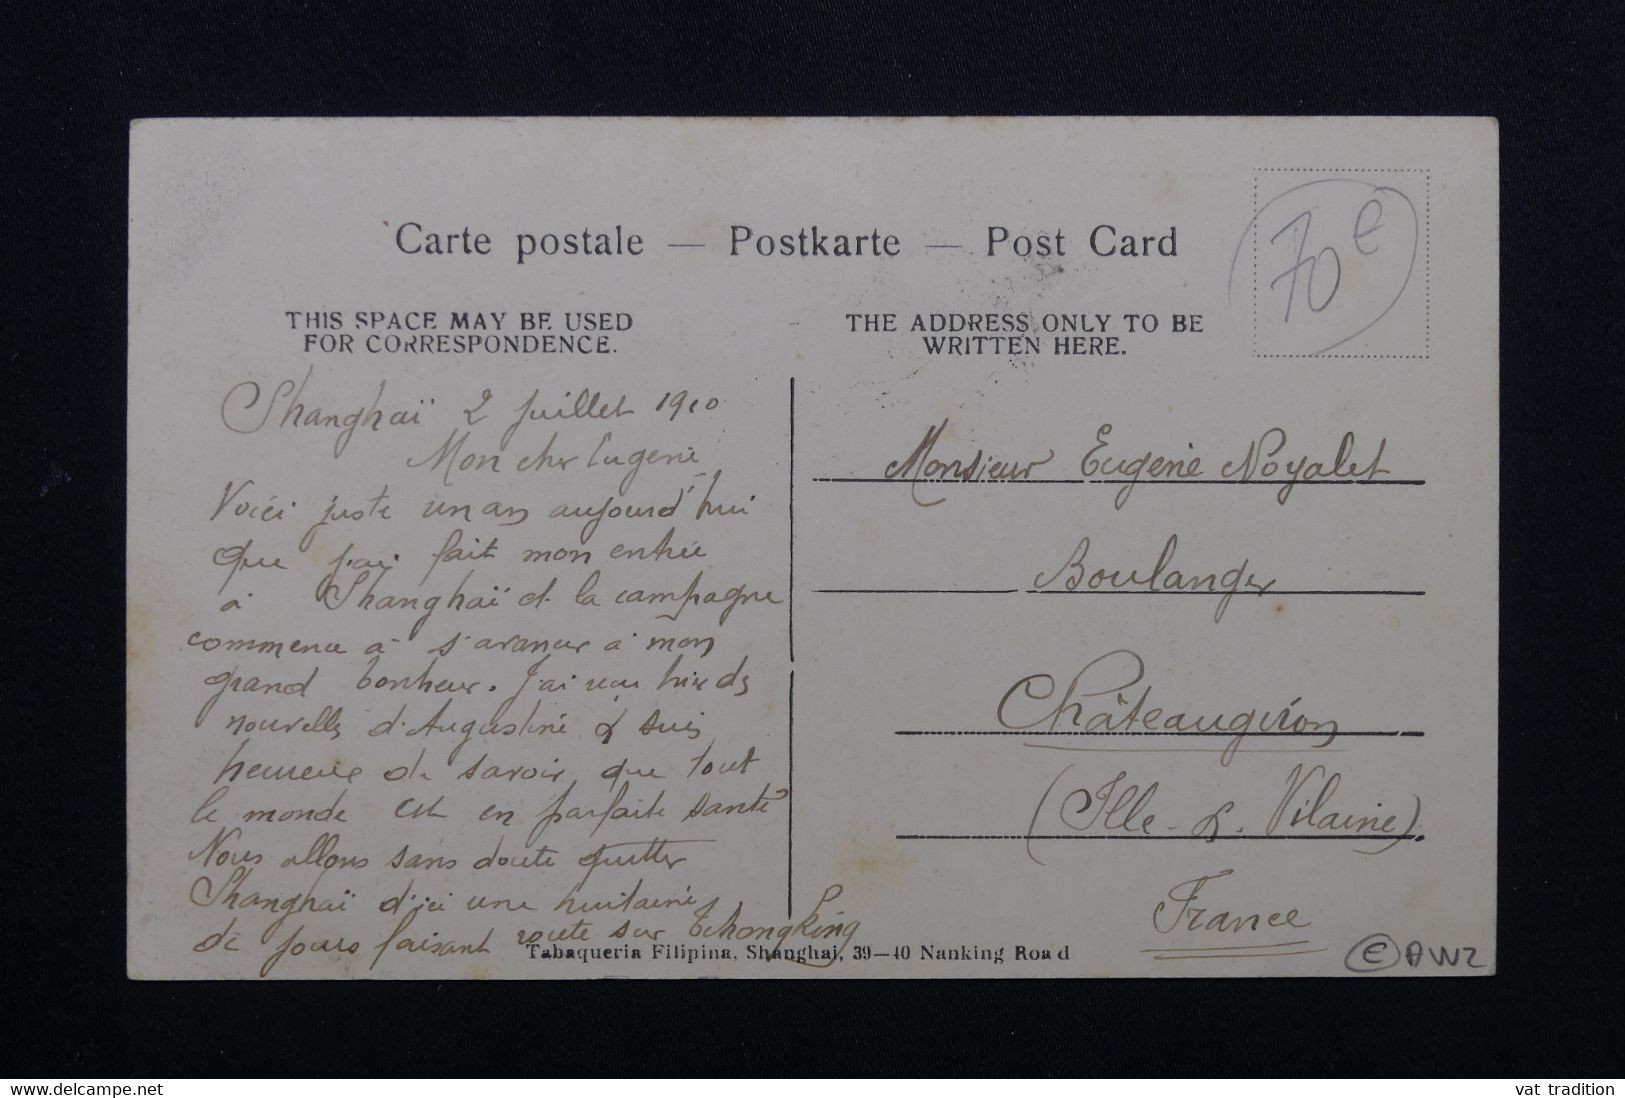 Carte postale — Postkarte — Post Card
70 e
THIS SPACE MAY BE USED
FOR CORRESPONDENCE.
THE ADDRESS ONLY TO BE
WRITTEN HERE.
Shanghaï 2 juillet 1910
Mon cher Eugène
Voici juste un an aujourd'hui
que j'ai fait mon entrée
à Shanghaï et la campagne
commence à s'avancer à mon
grand bonheur. J'ai reçu hier des
nouvelles d'Augustine & suis
heureuse de savoir que tout
le monde est en parfaite santé
Nous allons sans doute quitter
Shanghaï d'ici une huitaine
de jours faisant route sur Tchongking
Monsieur Eugène Noyalet
Boulanger
Châteaugiron
(Ille-&-Vilaine).
France
Tabaqueria Filipina, Shanghai, 39—40 Nanking Road
C AWZ
www.delcampe.net
vat tradition